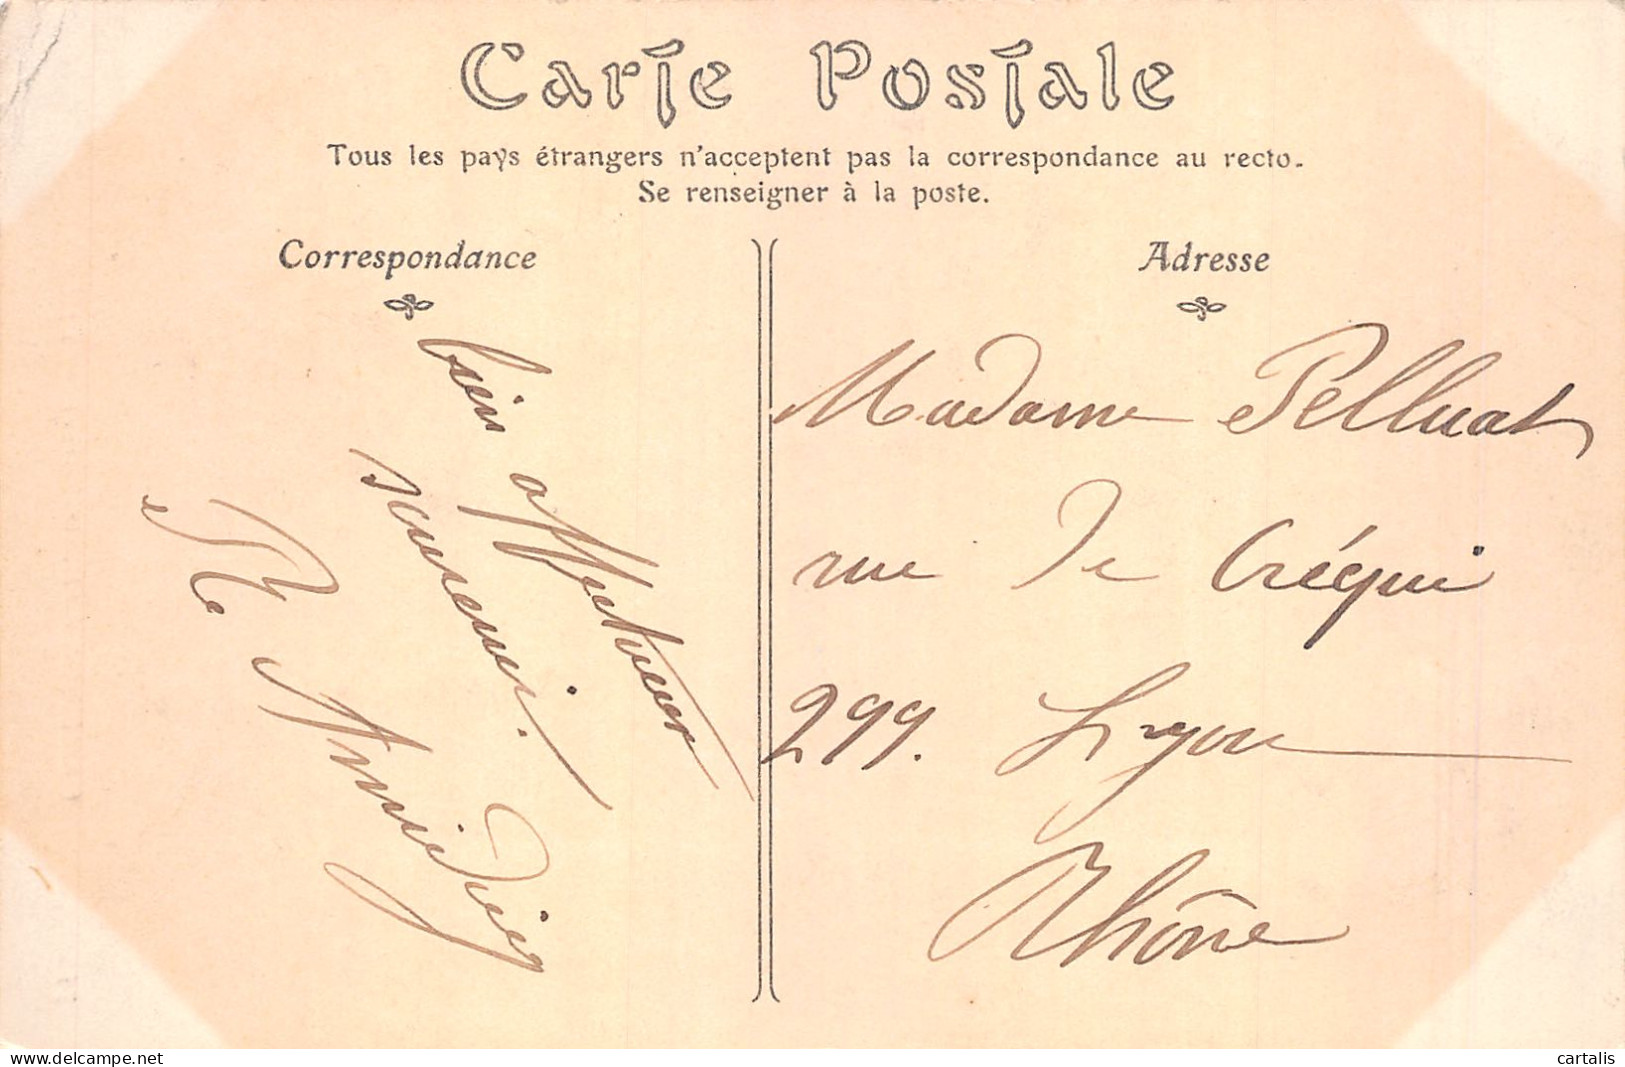 Carte Postale
Tous les pays étrangers n'acceptent pas la correspondance au recto.
Se renseigner à la poste.
Correspondance
bien affectueux
souvenir.
Adresse
Madame Pelluat
rue de Créqui
299. Lyon
Rhône
www.delcampe.net
cartalis